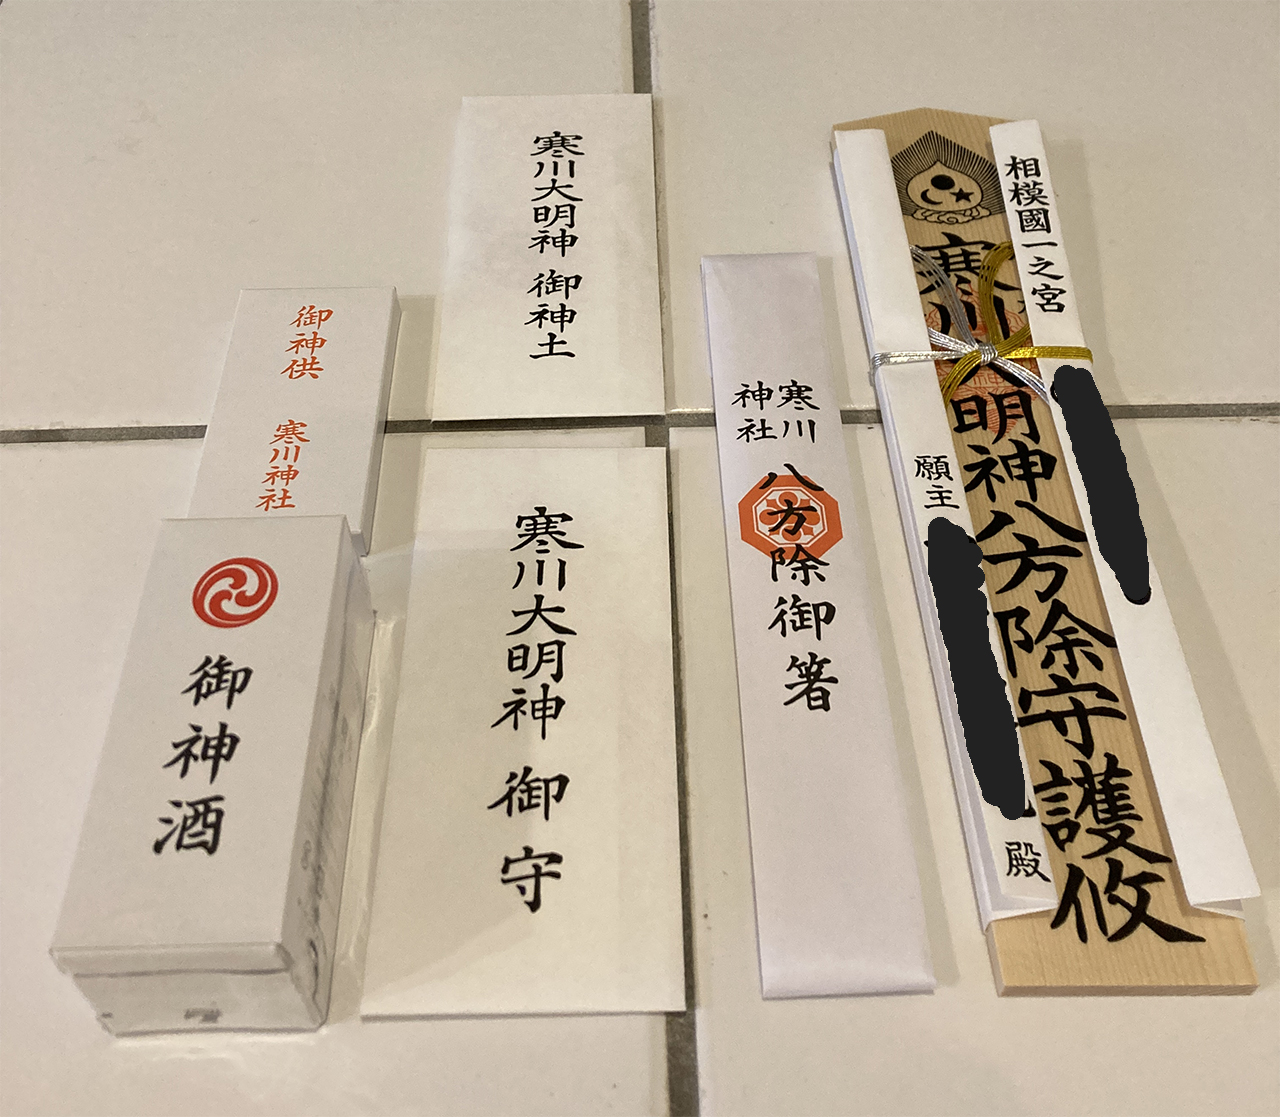 御神供 寒川神社
御神酒
寒川大明神 御神土
寒川大明神 御守
寒川
神社
八方除御箸
相模國一之宮
寒川大明神八方除守護攸
願主
殿